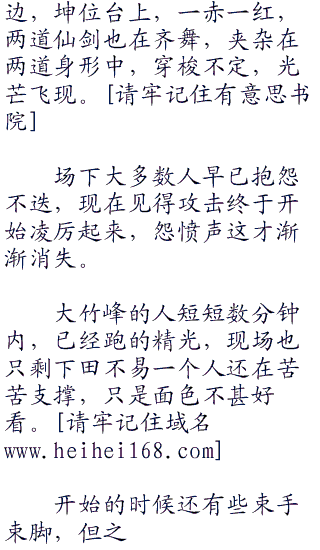 边，坤位台上，一赤一红，
两道仙剑也在齐舞，夹杂在
两道身形中，穿梭不定，光
芒飞现。[请牢记住有意思书
院]
场下大多数人早已抱怨
不迭，现在见得攻击终于开
始凌厉起来，怨愤声这才渐
渐消失。
大竹峰的人短短数分钟
内，已经跑的精光，现场也
只剩下田不易一个人还在苦
苦支撑，只是面色不甚好
看。[请牢记住域名
www.heihei168.com]
开始的时候还有些束手
束脚，但之